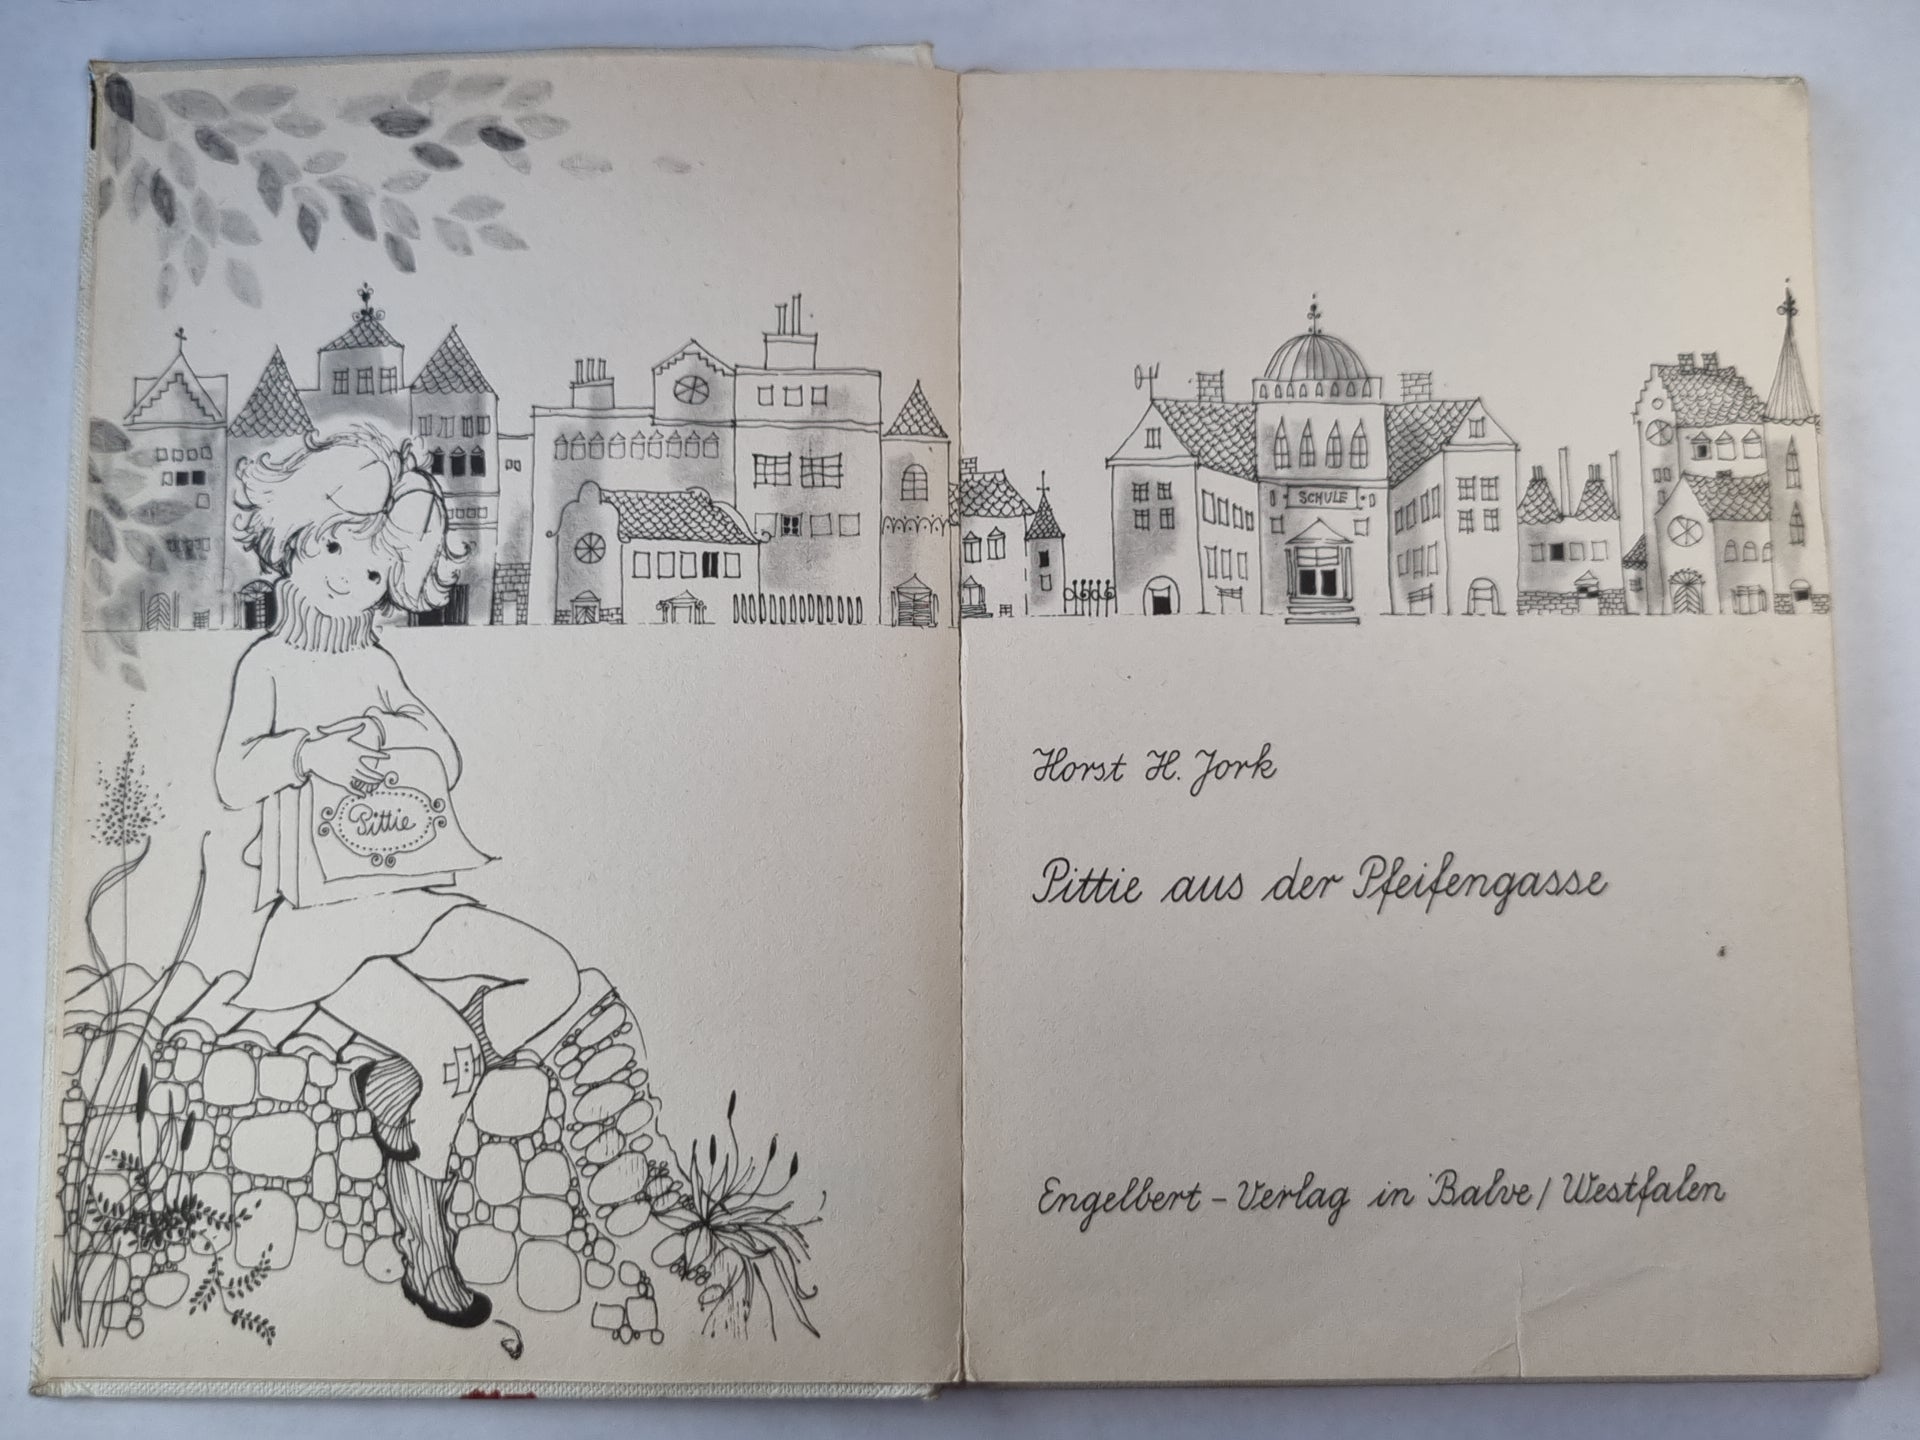 SCHULE
Pittie
Horst H. Jork
Pittie aus der Pfeifengasse
Engelbert - Verlag in Balve / Westfalen